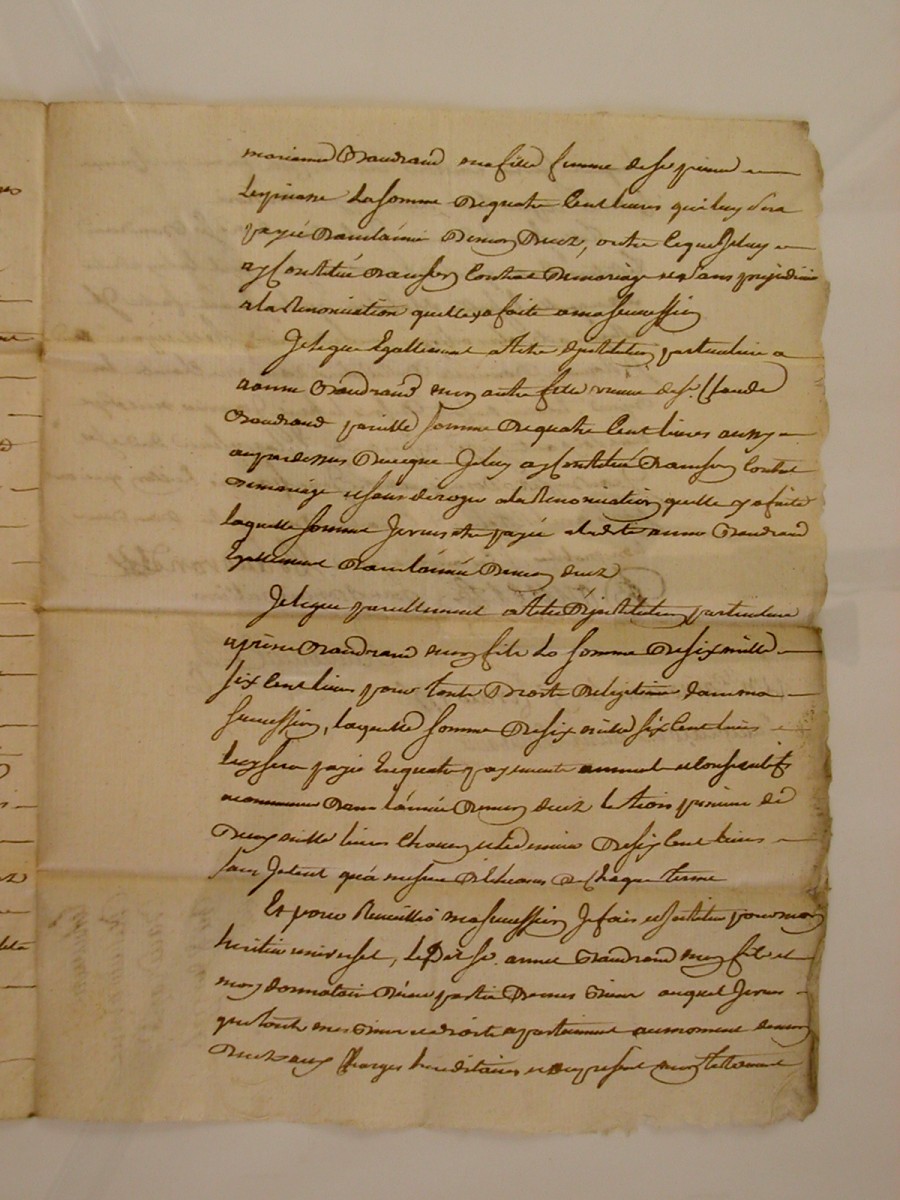 marianne Baudrand ma fille femme de sr. pierre
Lespinasse La somme de quatre Cent livres qui luy sera
payée dans L'année de mon decez, outre ce que Je luy
ay Constitué dans son Contrat de mariage et sans prejudice
a la Renonciation quelle y a faite a ma succession
Je legue Egallement a titre d'institution particuliere a
anne Baudrand mon autre fille veuve de sr. Claude
Baudrand pareille somme de quatre Cent livres aussy
au pardessus de ce que Je luy ay Constitué dans son Contrat
de mariage et sans deroger a la Renonciation quelle y a faite
laquelle somme Je veux etre payée a ladite anne Baudrand
Egallement dans L'année de mon decez
Je legue pareillement a titre d'institution particuliere
a pierre Baudrand mon fils La somme de six mille
six Cent livres pour toute droits de legitime dans ma
succession, laquelle somme de six mille six Cent livres
luy sera payée En quatre payements annuel et Consecutifs
a commencer dans L'année de mon decez les trois premiers de
deux mille livres Chacun et le dernier de six Cent livres
sans Interet qu'a mesure d'Echeance de Chaque terme
Et pour Recueillir ma succession Je fais et institue pour mon
heritier universel, Le dit sr. annet Baudrand mon fils et
mon donnataire d'une partie de mes Biens auquel Je veux
que toute mes Biens et droits apartiennent au moment de mon
decez aux Charges hereditaires et du present mon testament